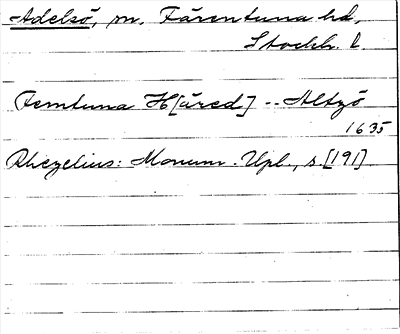 Adelsö, sn. Färentuna hd,
Stockh. l.
Femtuna H[äred] -- Altzö
1635
Rhezelius: Monum. Upl., s. [191].